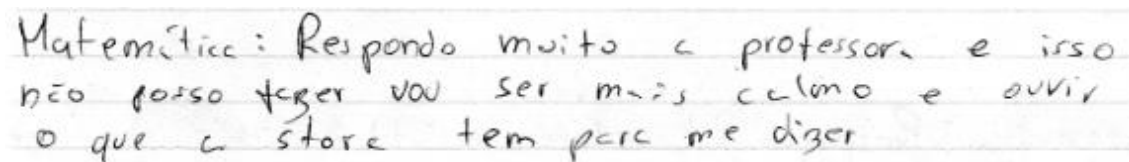 Matemática: Respondo muito a professora e isso
não posso fazer vou ser mais calmo e ouvir
o que a stora tem para me dizer